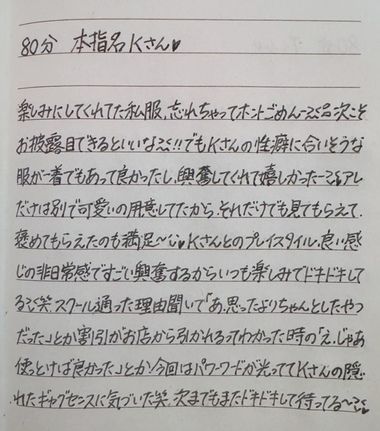 80分 本指名Kさん♥
楽しみにしてくれてた私服、忘れちゃってホントごめん〜 次こそ
お披露目できるといいな!!でもKさんの性癖に合いそうな
服が一着でもあって良かったし、興奮してくれて嬉しかった〜 アレ
だけは別で可愛いの用意してたから、それだけでも見てもらえて、
褒めてもらえたのも満足〜 Kさんとのプレイスタイル、良い感
じの非日常感ですごい興奮するからいつも楽しみでドキドキして
る笑 スクール通った理由聞いて「あ、思ったよりちゃんとしたやつ
だった」とか割引がお店から引かれるってわかった時の「え、じゃあ
使っとけば良かった」とか今回はパワーワードが光っててKさんの隠
れたギャグセンスに気づいた笑 次までもまたドキドキして待ってる〜